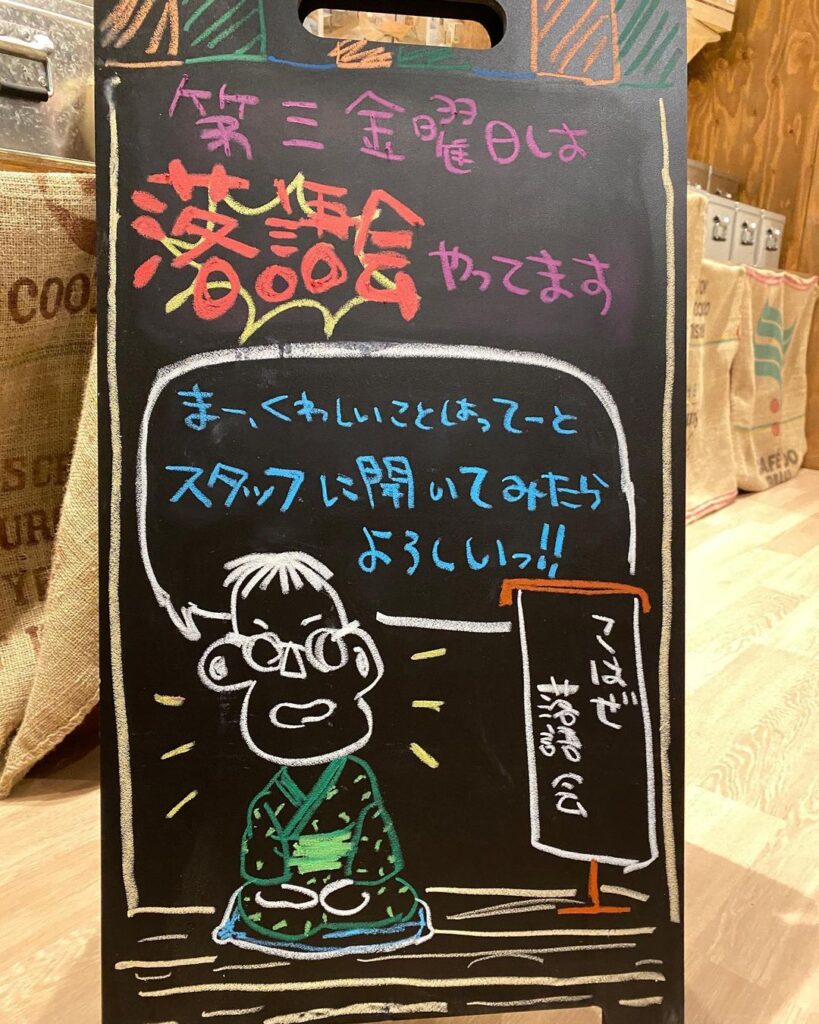 第三金曜日は
落語会やってます
まー、くわしいことはってーと
スタッフに開いてみたら
よろしいっ!!
COO
URO
YE
AFÉ DO